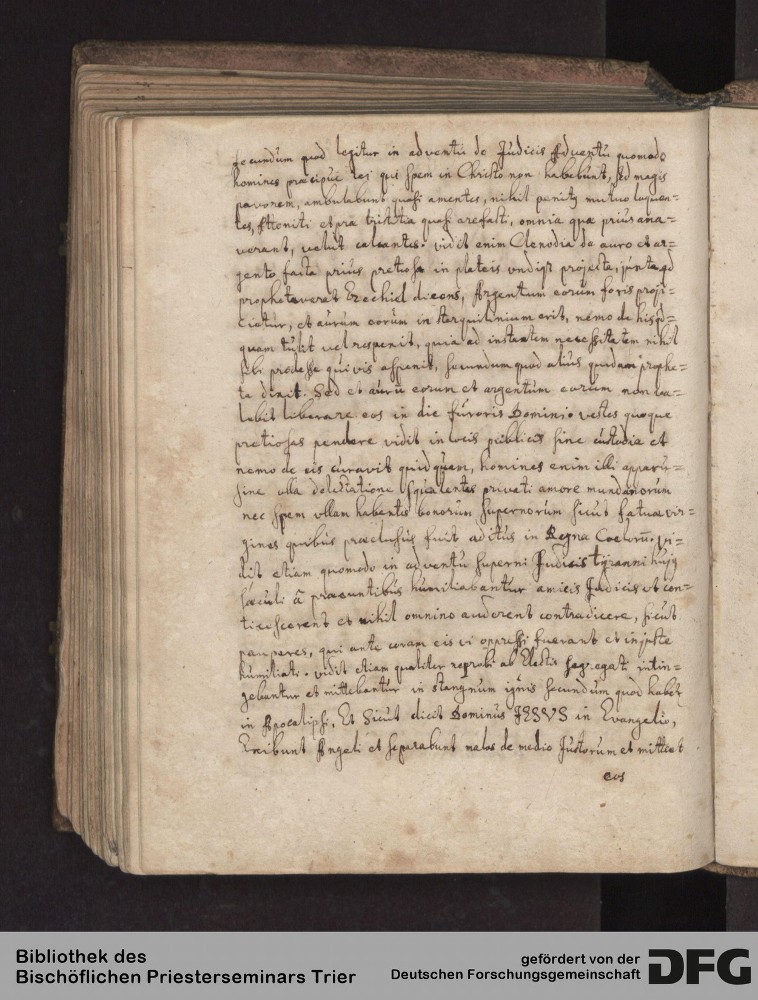 secundum quod legitur in adventu de Judicis Adventu quomodo
homines præcipue qui spem in Christo non habebunt, sed magis
pavorem, ambulabunt quasi amentes, nihil penitq mutuo loquen=
tes, Attoniti et præ tristitia quasi arefacti, omnia quæ prius ama=
verant, velut calcantes. vidit enim Clenodia de auro et ar=
gento facta prius pretiosa in plateis undiqz projecta, juxta qd
prophetaverat Ezechiel dicens, Argentum eorum foris proji=
cietur, et aurum eorum in sterquilinium erit, nemo de his qd=
quam tulit vel respexit, quia ad instantem necessitatem nihil
sibi prodesse quivis aspexit, secundum quod alius quidam prophe=
ta dixit. Sed et aurū eorum et argentum eorum non va=
lebit liberare eos in die furoris Domini. vestes quoque
pretiosas pendere vidit in locis publicis sine custodia et
nemo de eis curavit quidquam, homines enim illi apparu=
sine ulla delectatione squalentes privati amore mundanorum
nec spem ullam habentes bonorum supernorum sicut fatuæ vir=
gines quibus præclusus fuit aditus in Regna Coelorū. vi=
dit etiam quomodo in adventu superni Judicis tyranni hujq
sæculi a præeuntibus humiliabantur amicis Judicis et con=
ticescerent et nihil omnino auderent contradicere, sicut
pauperes, qui ante coram eis vi oppressi fuerant et injuste
humiliati. vidit etiam qualiter reprobi ab Electis segregati
gebantur et mittebantur in stangnum ignis secundum quod habetr
in Apocalipsi, Et Sicut dicit Dominus JESUS in Evangelio,
Exibunt Angeli et separabunt malos de medio Justorum et mittent
eos
Bibliothek des
Bischöflichen Priesterseminars Trier
gefördert von der
Deutschen Forschungsgemeinschaft
DFG